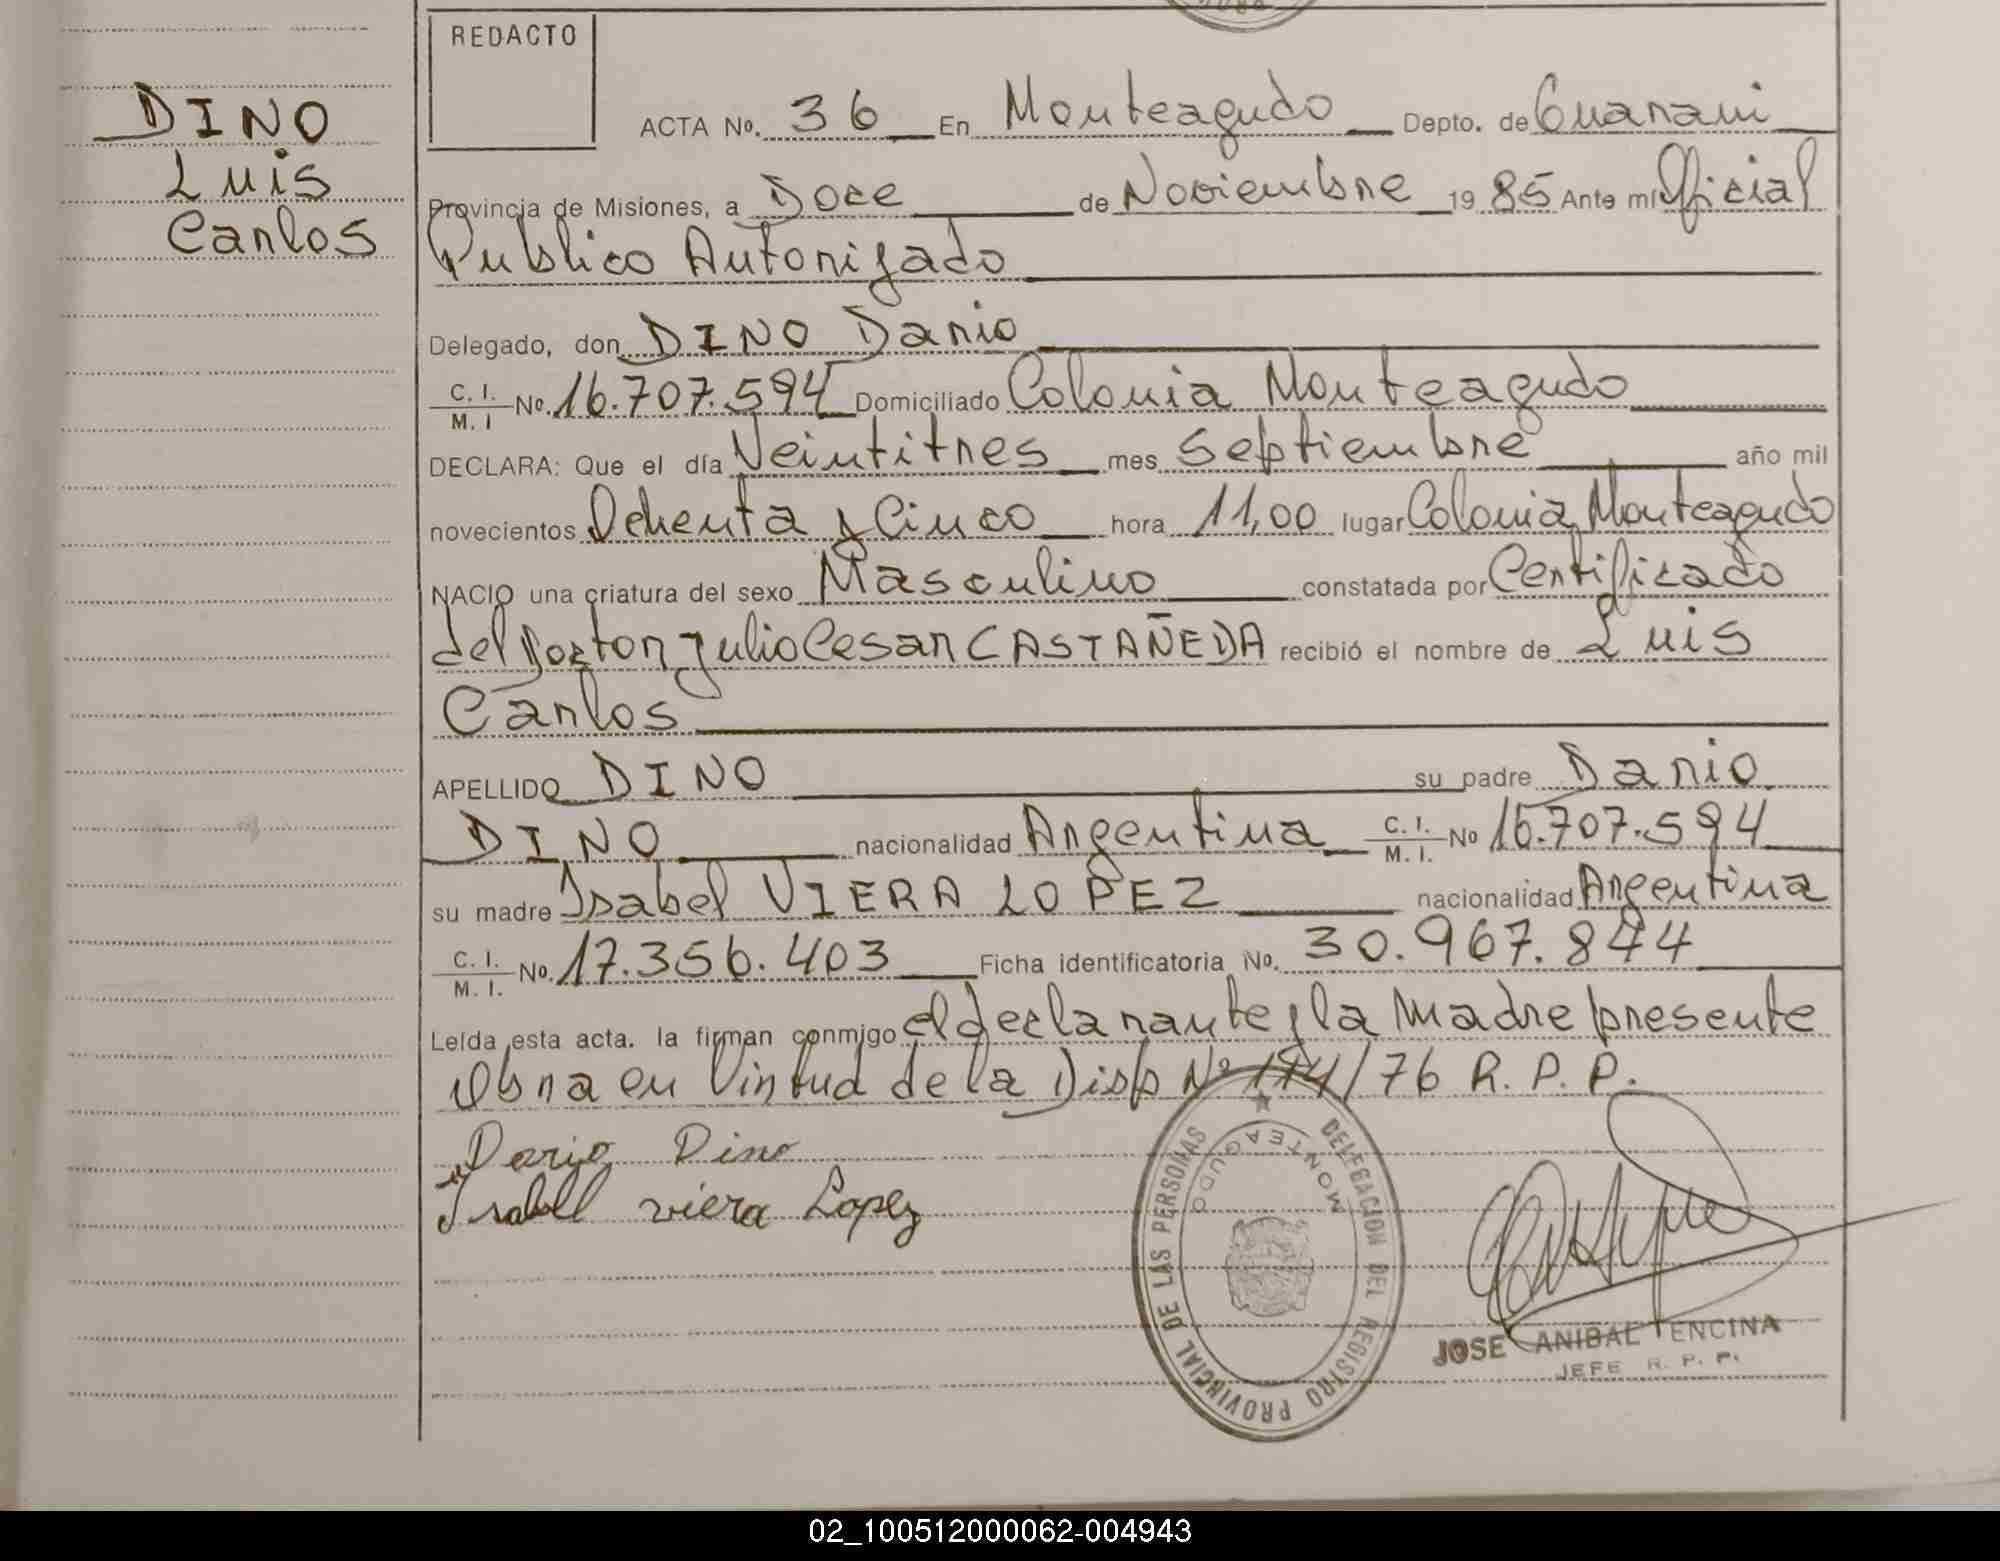 DINO
Luis
Carlos
REDACTO
ACTA No. 36 En Monteagudo Depto. de Guarani
Provincia de Misiones, a Doce de Noviembre 1985 Ante mi Oficial
Publico Autorizado
Delegado, don DINO Dario
C. I. / M. I No. 16.707.594 Domiciliado Colonia Monteagudo
DECLARA: Que el día Veintitres mes septiembre año mil
novecientos Ochenta y Cinco hora 11,00 lugar Colonia Monteagudo
NACIO una criatura del sexo Masculino constatada por Certificado
del Doctor Julio Cesar CASTAÑEDA recibió el nombre de Luis
Carlos
APELLIDO DINO su padre Dario
DINO nacionalidad Argentina C. I. / M. I. No 16.707.594
su madre Isabel VIERA LOPEZ nacionalidad Argentina
C. I. / M. I. No. 17.356.403 Ficha identificatoria No. 30.967.844
Leída esta acta. la firman conmigo el declarante y la Madre presente
Obra en Virtud de la Disp Nº 174/76 R. P. P.
Dario Dino
Isabell viera Lopez
DELEGACION DEL REGISTRO PROVINCIAL DE LAS PERSONAS
MONTEAGUDO
JOSE ANIBAL ENCINA
JEFE R. P. P.
02_100512000062-004943